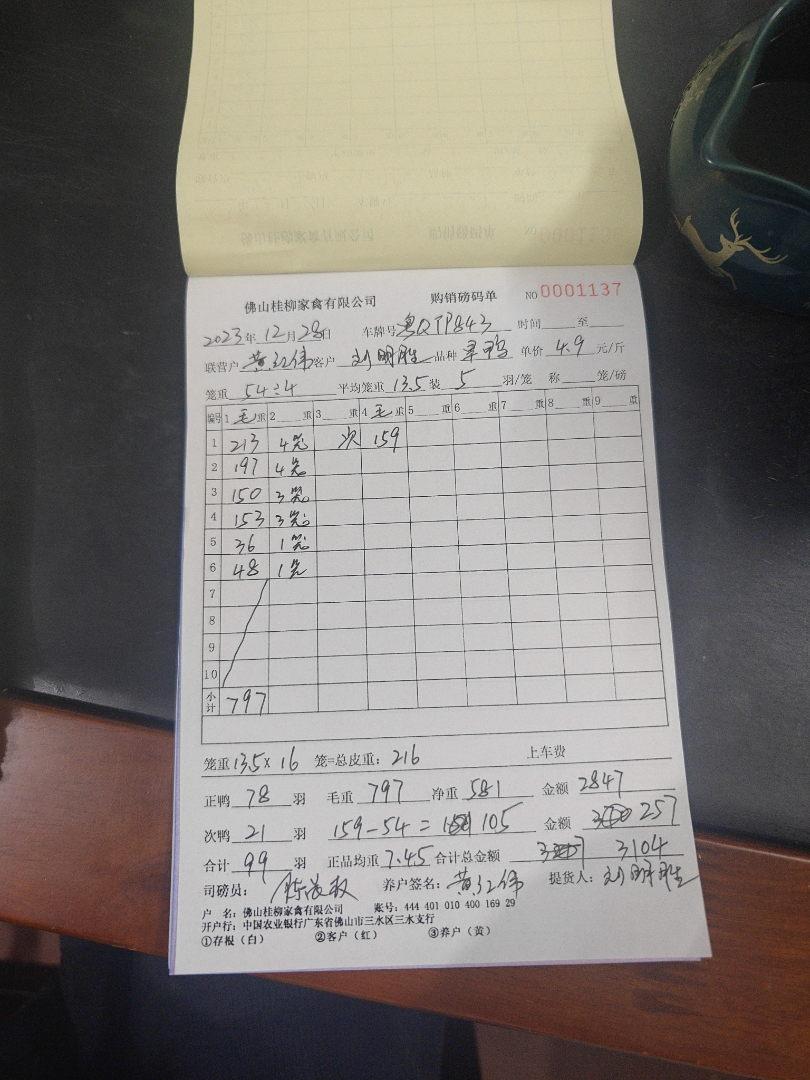 佛山桂柳家禽有限公司 购销磅码单 NO 0001137
2023年12月28日 车牌号粤QTP843 时间 至
联营户黄红伟客户 刘明胜 品种 单价 4.9 元/斤
笼重 54÷4 平均笼重 13.5 装 5 羽/笼 称 笼/磅
编号 1毛重 2 重 3 重 4毛重 5 重 6 重 7 重 8 重 9 重
1 213 4笼 次 159
2 197 4笼
3 150 3笼
4 153 3笼
5 36 1笼
6 48 1笼
7
8
9
10
小计 797
笼重 13.5× 16 笼=总皮重: 216 上车费
正鸭 78 羽 毛重 797 净重 581 金额 2847
次鸭 21 羽 159-54= 105 金额 257
合计 99 羽 正品均重 7.45 合计总金额 3104
司磅员: 养户签名: 黄红伟 提货人: 刘明胜
户 名: 佛山桂柳家禽有限公司 账号: 444 401 010 400 169 29
开户行: 中国农业银行广东省佛山市三水区三水支行
①存根(白) ②客户(红) ③养户(黄)